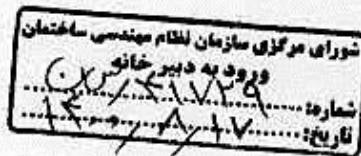 شورای مرکزی سازمان نظام مهندسی ساختمان
ورود به دبیر خانه
شماره: ۳۱۷۲۹
تاریخ: ۱۴۰۰/۸/۱۷